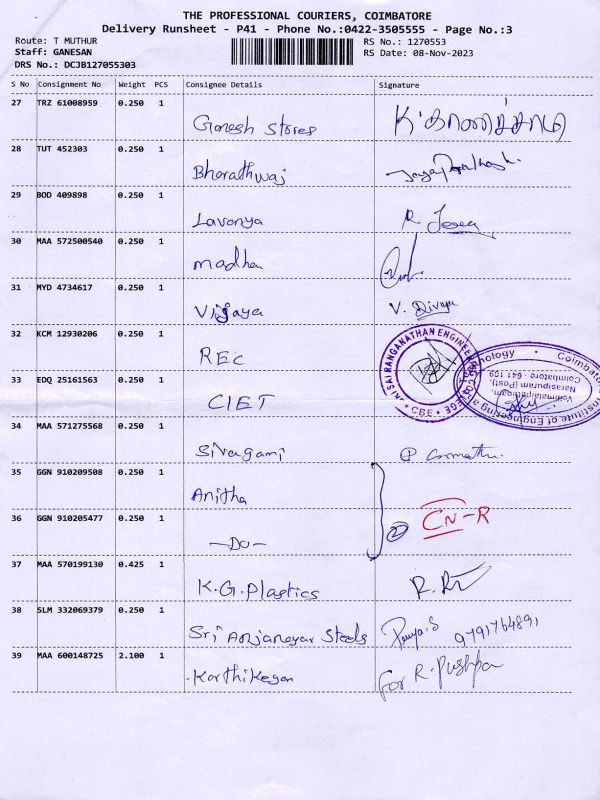 THE PROFESSIONAL COURIERS, COIMBATORE
Delivery Runsheet - P41 - Phone No.:0422-3505555 - Page No.:3
Route: T MUTHUR
RS No.: 1270553
Staff: GANESAN
RS Date: 08-Nov-2023
DRS No.: DCJB127055303
S No Consignment No Weight PCS Consignee Details Signature
27 TRZ 61008959 0.250 1
Ganesh Stores
28 TUT 452303 0.250 1
Bharathwaj
29 BOD 409898 0.250 1
Lavanya R.
30 MAA 572500540 0.250 1
Madha
31 MYD 4734617 0.250 1
Vijaya V. Divya
32 KCM 12930206 0.250 1
REC
33 EDQ 25161563 0.250 1
CIET
SAI RANGANATHAN ENGINEERING COLLEGE
CBE
Coimbatore Institute of Engineering and Technology
Vellimalaipattinam,
Narasipuram (Post),
Coimbatore - 641 109
34 MAA 571275568 0.250 1
Sivagami
35 GGN 910209508 0.250 1
Anitha
36 GGN 910205477 0.250 1
-Do- 2 CN-R
37 MAA 570199130 0.425 1
K.G.Plastics
38 SLM 332069379 0.250 1
Sri Anjaneyar Steels Priya.S 9791764891
39 MAA 600148725 2.100 1
Karthikeyan For R. Pushpa